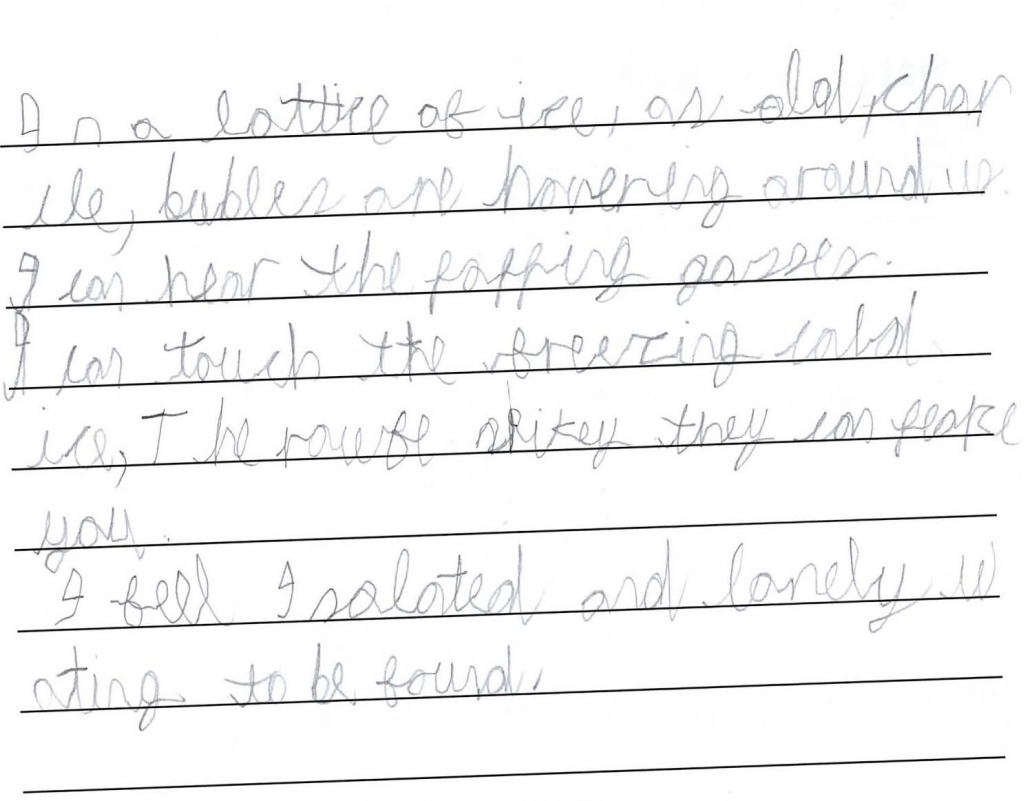 In a lattice of ice, as old, char
ile, bubles are hovering around us.
I can hear the popping gasses.
I can touch the freezing cold
ice, The roufe spikey they can
you.
I fell Isolated and lonely w
ating to be found.